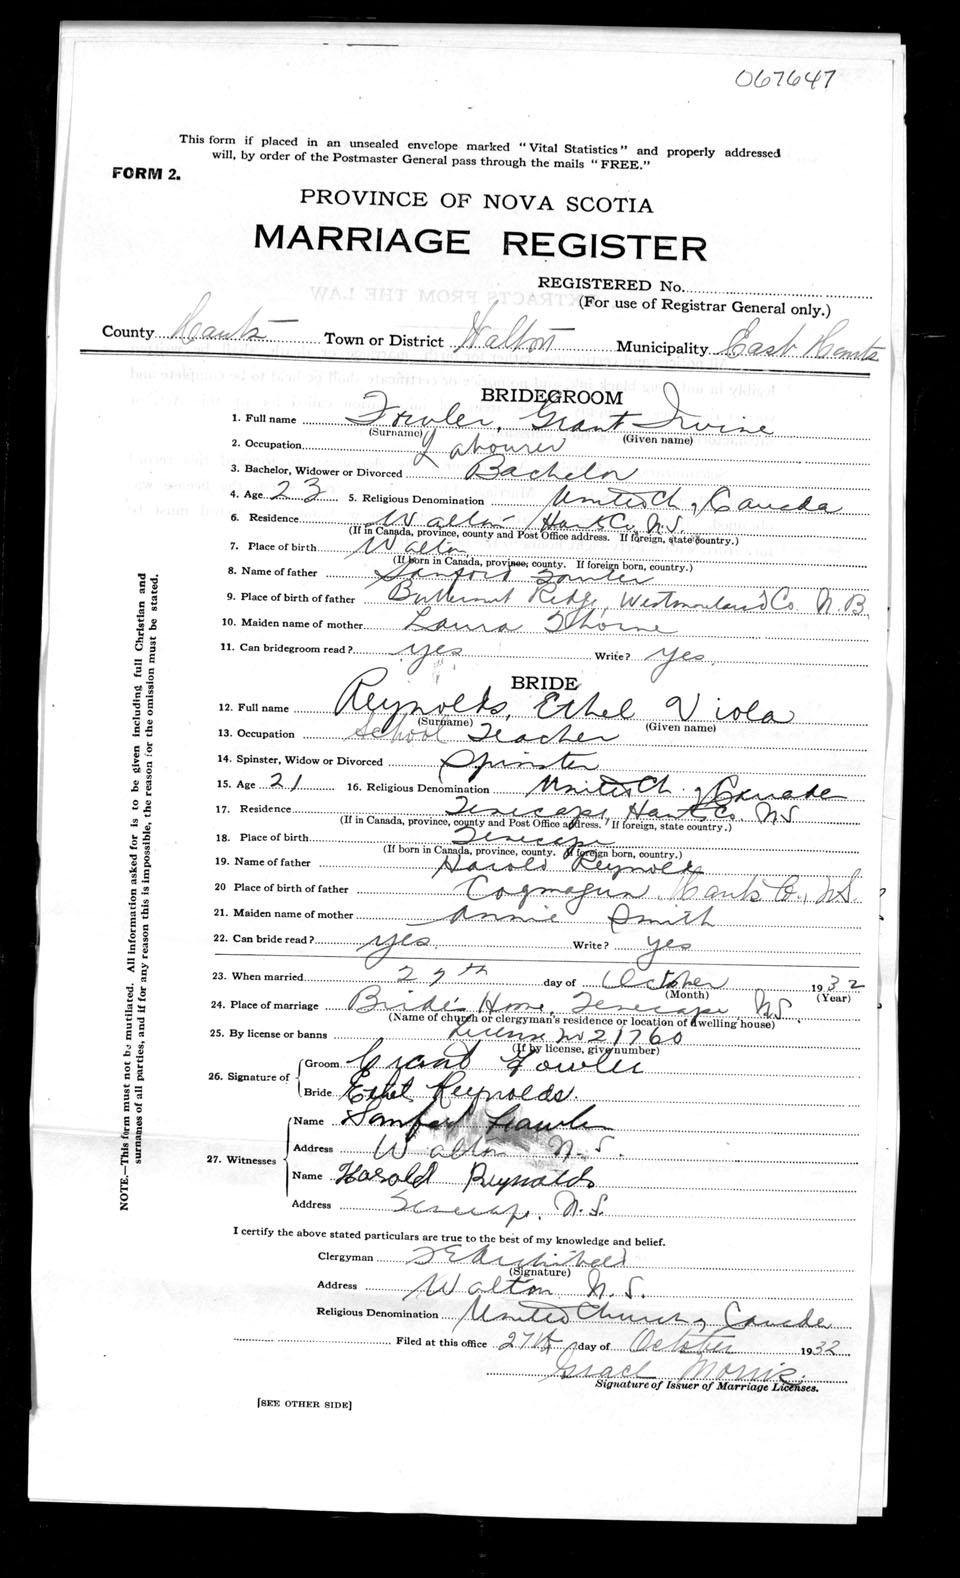 067647
This form if placed in an unsealed envelope marked "Vital Statistics" and properly addressed
will, by order of the Postmaster General pass through the mails "FREE."
FORM 2.
PROVINCE OF NOVA SCOTIA
MARRIAGE REGISTER
REGISTERED No.
(For use of Registrar General only.)
County Hants Town or District Walton Municipality East Hants
BRIDEGROOM
1. Full name Fowler, Grant Irvine
(Surname) (Given name)
2. Occupation Labourer
3. Bachelor, Widower or Divorced Bachelor
4. Age 23 5. Religious Denomination United Ch of Canada
6. Residence Walton Hants Co, N.S.
(If in Canada, province, county and Post Office address. If foreign, state country.)
7. Place of birth Walton
(If born in Canada, province, county. If foreign born, country.)
8. Name of father Sanford Fowler
9. Place of birth of father Butternut Ridge, Westmorland Co. N.B.
10. Maiden name of mother Laura Thorne
11. Can bridegroom read? yes Write? yes
BRIDE
12. Full name Reynolds, Ethel Viola
(Surname) (Given name)
13. Occupation School Teacher
14. Spinster, Widow or Divorced Spinster
15. Age 21 16. Religious Denomination United Ch of Canada
17. Residence Tenecape, Hants Co NS
(If in Canada, province, county and Post Office address. If foreign, state country.)
18. Place of birth Tenecape
(If born in Canada, province, county. If foreign born, country.)
19. Name of father Harold Reynolds
20 Place of birth of father Cogmagun Hants Co., N.S.
21. Maiden name of mother Annie Smith
22. Can bride read? yes Write? yes
23. When married 27th day of October 1932
(Month) (Year)
24. Place of marriage Bride's Home, Tenecape N.S.
(Name of church or clergyman's residence or location of dwelling house)
25. By license or banns License No 21760
(If by license, give number)
26. Signature of Groom Grant Fowler
Bride Ethel Reynolds.
27. Witnesses Name Sanford Fowler
Address Walton N.S.
Name Harold Reynolds
Address Tenecape, N.S.
I certify the above stated particulars are true to the best of my knowledge and belief.
Clergyman Archibald
(Signature)
Address Walton N.S.
Religious Denomination United Church of Canada
Filed at this office 27th day of October 1932
Israel Morris
Signature of Issuer of Marriage Licenses.
[SEE OTHER SIDE]
NOTE.—This form must not be mutilated. All information asked for is to be given including full Christian and
surnames of all parties, and if for any reason this is impossible, the reason for the omission must be stated.